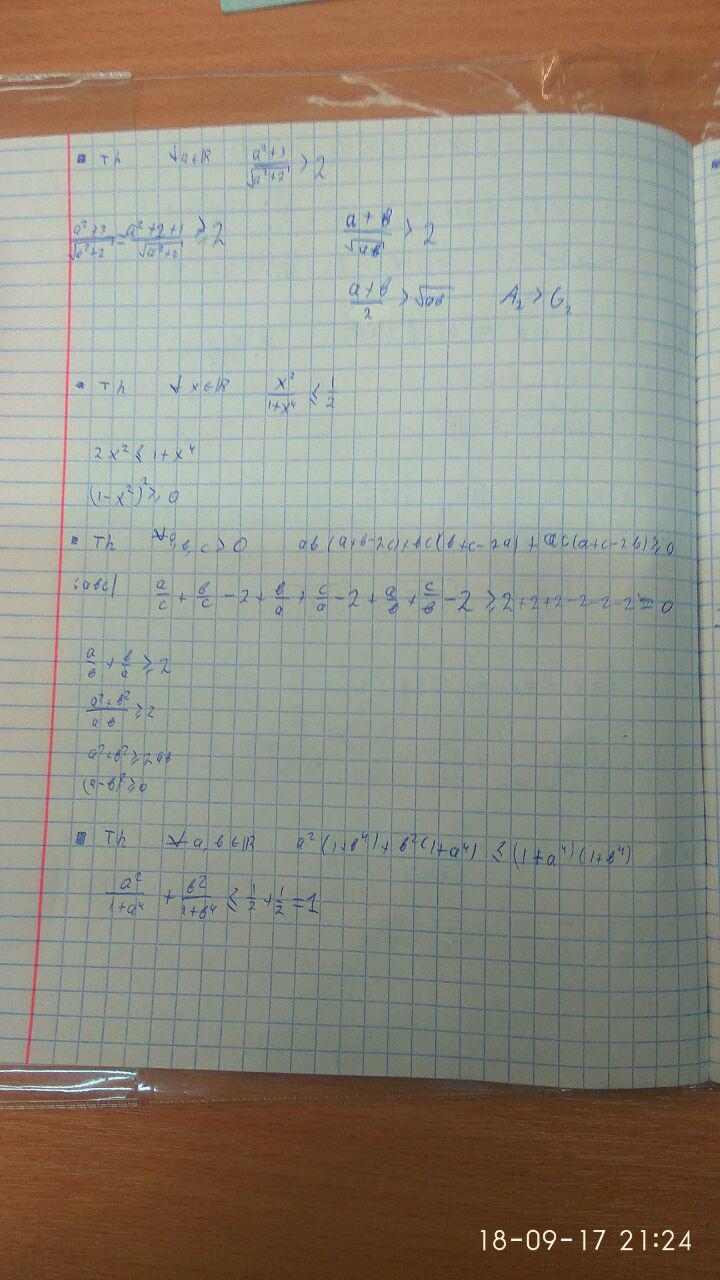 Th ∀a∈ℝ (a²+3)/√(a²+2) > 2
(a²+3)/√(a²+2) = (a²+2+1)/√(a²+2) ≥ 2 (a+b)/√(ab) > 2
(a+b)/2 > √(ab) A₂ > G₂
Th ∀x∈ℝ x²/(1+x⁴) ≤ 1/2
2x² ≤ 1+x⁴
(1-x²)² ≥ 0
Th ∀a,b,c > 0 ab(a+b-2c)+bc(b+c-2a)+ac(a+c-2b) ≥ 0
:abc| a/c + b/c - 2 + b/a + c/a - 2 + a/b + c/b - 2 ≥ 2+2+2-2-2-2 = 0
a/b + b/a ≥ 2
(a²+b²)/(ab) ≥ 2
a²+b² ≥ 2ab
(a-b)² ≥ 0
Th ∀a,b∈ℝ a²(1+b⁴)+b²(1+a⁴) ≤ (1+a⁴)(1+b⁴)
a²/(1+a⁴) + b²/(1+b⁴) ≤ 1/2 + 1/2 = 1
18-09-17 21:24